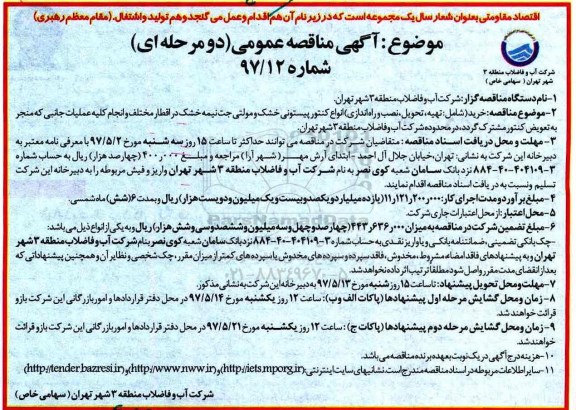 اقتصاد مقاومتی بعنوان شعار سال یک مجموعه است که در زیر نام آن هم اقدام و عمل می گنجد و هم تولید و اشتغال. (مقام معظم رهبری)
موضوع: آگهی مناقصه عمومی (دو مرحله ای)
شماره ۹۷/۱۲
شرکت آب و فاضلاب منطقه ۳
شهر تهران (سهامی خاص)
۱- نام دستگاه مناقصه گزار: شرکت آب و فاضلاب منطقه ۳ شهر تهران.
۲- موضوع مناقصه: خرید (شامل: تهیه، تحویل، نصب و راه اندازی) انواع کنتور پیستونی خشک و مولتی جت نیمه خشک در اقطار مختلف و انجام کلیه عملیات جانبی که منجر
به تعویض کنتور مشترک گردد، در محدوده شرکت آب و فاضلاب منطقه ۳ شهر تهران.
۳- مهلت و محل دریافت اسناد مناقصه: متقاضیان شرکت در مناقصه می توانند حداکثر تا ساعت ۱۵ روز سه شنبه مورخ ۹۷/۵/۲ با معرفی نامه معتبر به
دبیرخانه این شرکت به نشانی: تهران، خیابان جلال آل احمد - ابتدای آرش مهر (شهر آرا) مراجعه و مبلغ ۴۰۰٫۰۰۰ (چهارصد هزار) ریال به حساب شماره
۳-۴۰۴۱۰۹-۴۰-۸۸۴ نزد بانک سامان شعبه کوی نصر به نام شرکت آب و فاضلاب منطقه ۳ شهر تهران واریز و فیش مربوطه را به دبیرخانه این شرکت
تسلیم و نسبت به دریافت اسناد مناقصه اقدام نمایند.
۴- مبلغ برآورد و مدت اجرای کار: ۱۱٫۱۲۱٫۲۰۰٫۰۰۰ (یازده میلیارد و یکصد و بیست و یک میلیون و دویست هزار) ریال و بمدت ۶ (شش) ماه شمسی.
۵- محل اعتبار: از محل اعتبارات جاری شرکت.
۶- مبلغ تضمین شرکت در مناقصه به میزان ۴۴۳٫۶۳۶٫۰۰۰ (چهارصد و چهل و سه میلیون و ششصد و سی و شش هزار) ریال و به یکی از انواع ذیل می باشد:
-چک بانکی تضمینی، ضمانتنامه بانکی و یا واریز نقدی به حساب شماره ۳-۴۰۴۱۰۹-۴۰-۸۸۴ نزد بانک سامان شعبه کوی نصر بنام شرکت آب و فاضلاب منطقه ۳ شهر
تهران و به پیشنهادهای فاقد امضاء، مشروط، مخدوش، فاقد سپرده و سپرده های مخدوش یا سپرده های کمتر از میزان مقرر، چک شخصی و نظایر آن و همچنین پیشنهاداتی که
بعد از انقضای مدت مقرر واصل شود مطلقا ترتیب اثر داده نخواهد شد.
۷- مهلت و محل تحویل پیشنهاد: تا ساعت ۱۵ روز شنبه مورخ ۹۷/۵/۱۳ به دبیرخانه این شرکت به نشانی مذکور.
۸- زمان و محل گشایش مرحله اول پیشنهادها (پاکات الف و ب): ساعت ۱۲ روز یکشنبه مورخ ۹۷/۵/۱۴ در محل دفتر قراردادها و امور بازرگانی این شرکت باز و
قرائت خواهند شد.
۹- زمان و محل گشایش مرحله دوم پیشنهادها (پاکات ج): ساعت ۱۲ روز یکشنبه مورخ ۹۷/۵/۲۱ در محل دفتر قراردادها و امور بازرگانی این شرکت باز و قرائت
خواهند شد.
۱۰- هزینه درج آگهی در یک نوبت بعهده برنده مناقصه می باشد.
۱۱- سایر اطلاعات مربوطه در اسناد مناقصه مندرج است. نشانیهای سایت اینترنتی: (http://iets.mporg.ir) و (http://www.nww.ir) و (http://tender.bazresi.ir)
شرکت آب و فاضلاب منطقه ۳ شهر تهران (سهامی خاص)